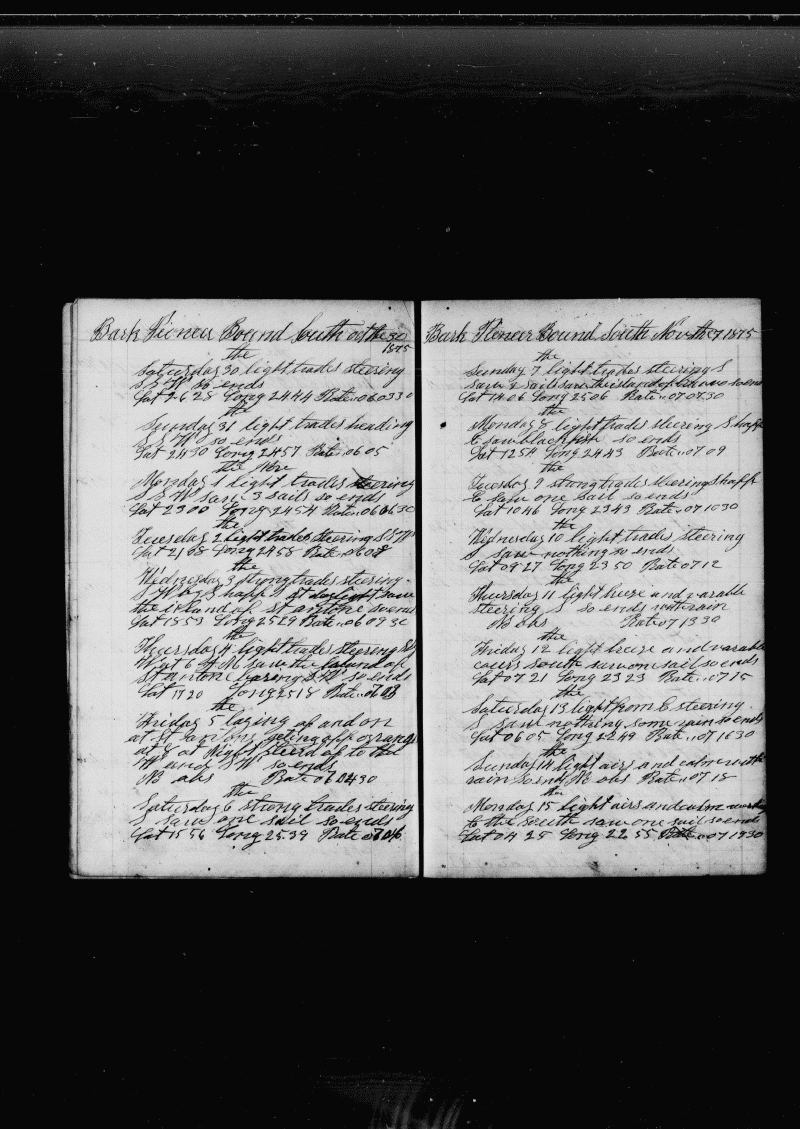 Bark Pioneer Bound South oct the 30
1875
the
Saturday 30 light trades steering
S S W So ends
Lat 26 28 Long 24 44 Rate 06 03 30
the
Sunday 31 light trades heading
S S W so ends
Lat 24 30 Long 24 57 Rate 06 05
the Nov
Monday 1 light trades steering
S S W saw 3 sails so ends
Lat 23 00 Long 24 54 Rate 06 06 30
the
Tuesday 2 light trades steering S S W
Lat 21 08 Long 24 58 Rate 06 08
the
Wednesday 3 strong trades steering
S W by S half S at daylight saw
the island of st antone so ends
Lat 18 53 Long 25 29 Rate 06 09 30
the
Thursday 4 light trades steering S by
W at 6 A M saw the Island of
St antone bearing S W so ends
Lat 17 20 Long 25 18 Rate
the
Friday 5 laying of and on
at St getting off oranges
at 8 at Night steerd of to the
W and so ends
No obs Rate
the
Saturday 6 strong trades steering
S saw one sail so ends
Lat 15 56 Long 25 39 Rate
Bark Pioneer Bound South Nov the 7 1875
the
Sunday 7 light trades steering S
saw 2 sails saw the island of so ends
Lat 14 06 Long 25 06 Rate 07 07 30
the
Monday 8 light trades steering S half
E saw blackfish so ends
Lat 12 54 Long 24 43 Rate 07 09
the
Tuesday 9 strong trades steering S half
E saw one sail so ends
Lat 10 46 Long 23 43 Rate 07 10 30
the
Wednesday 10 light trades steering
S saw nothing so ends
Lat 09 27 Long 23 50 Rate 07 12
the
Thursday 11 light breeze and varable
steering S so ends with rain
No obs Rate 07 13 30
the
Friday 12 light breeze and varable
cours south saw one sail so ends
Lat 07 21 Long 23 23 Rate 07 15
the
Saturday 13 light from E steering
S saw nothing some rain so ends
Lat 06 05 Long 22 49 Rate 07 16 30
the
Sunday 14 light airs and calm with
rain so ends No obs Rate 07 18
the
Monday 15 light airs and calm
to the south saw one sail so ends
Lat 04 25 Long 22 55 Rate 07 19 30